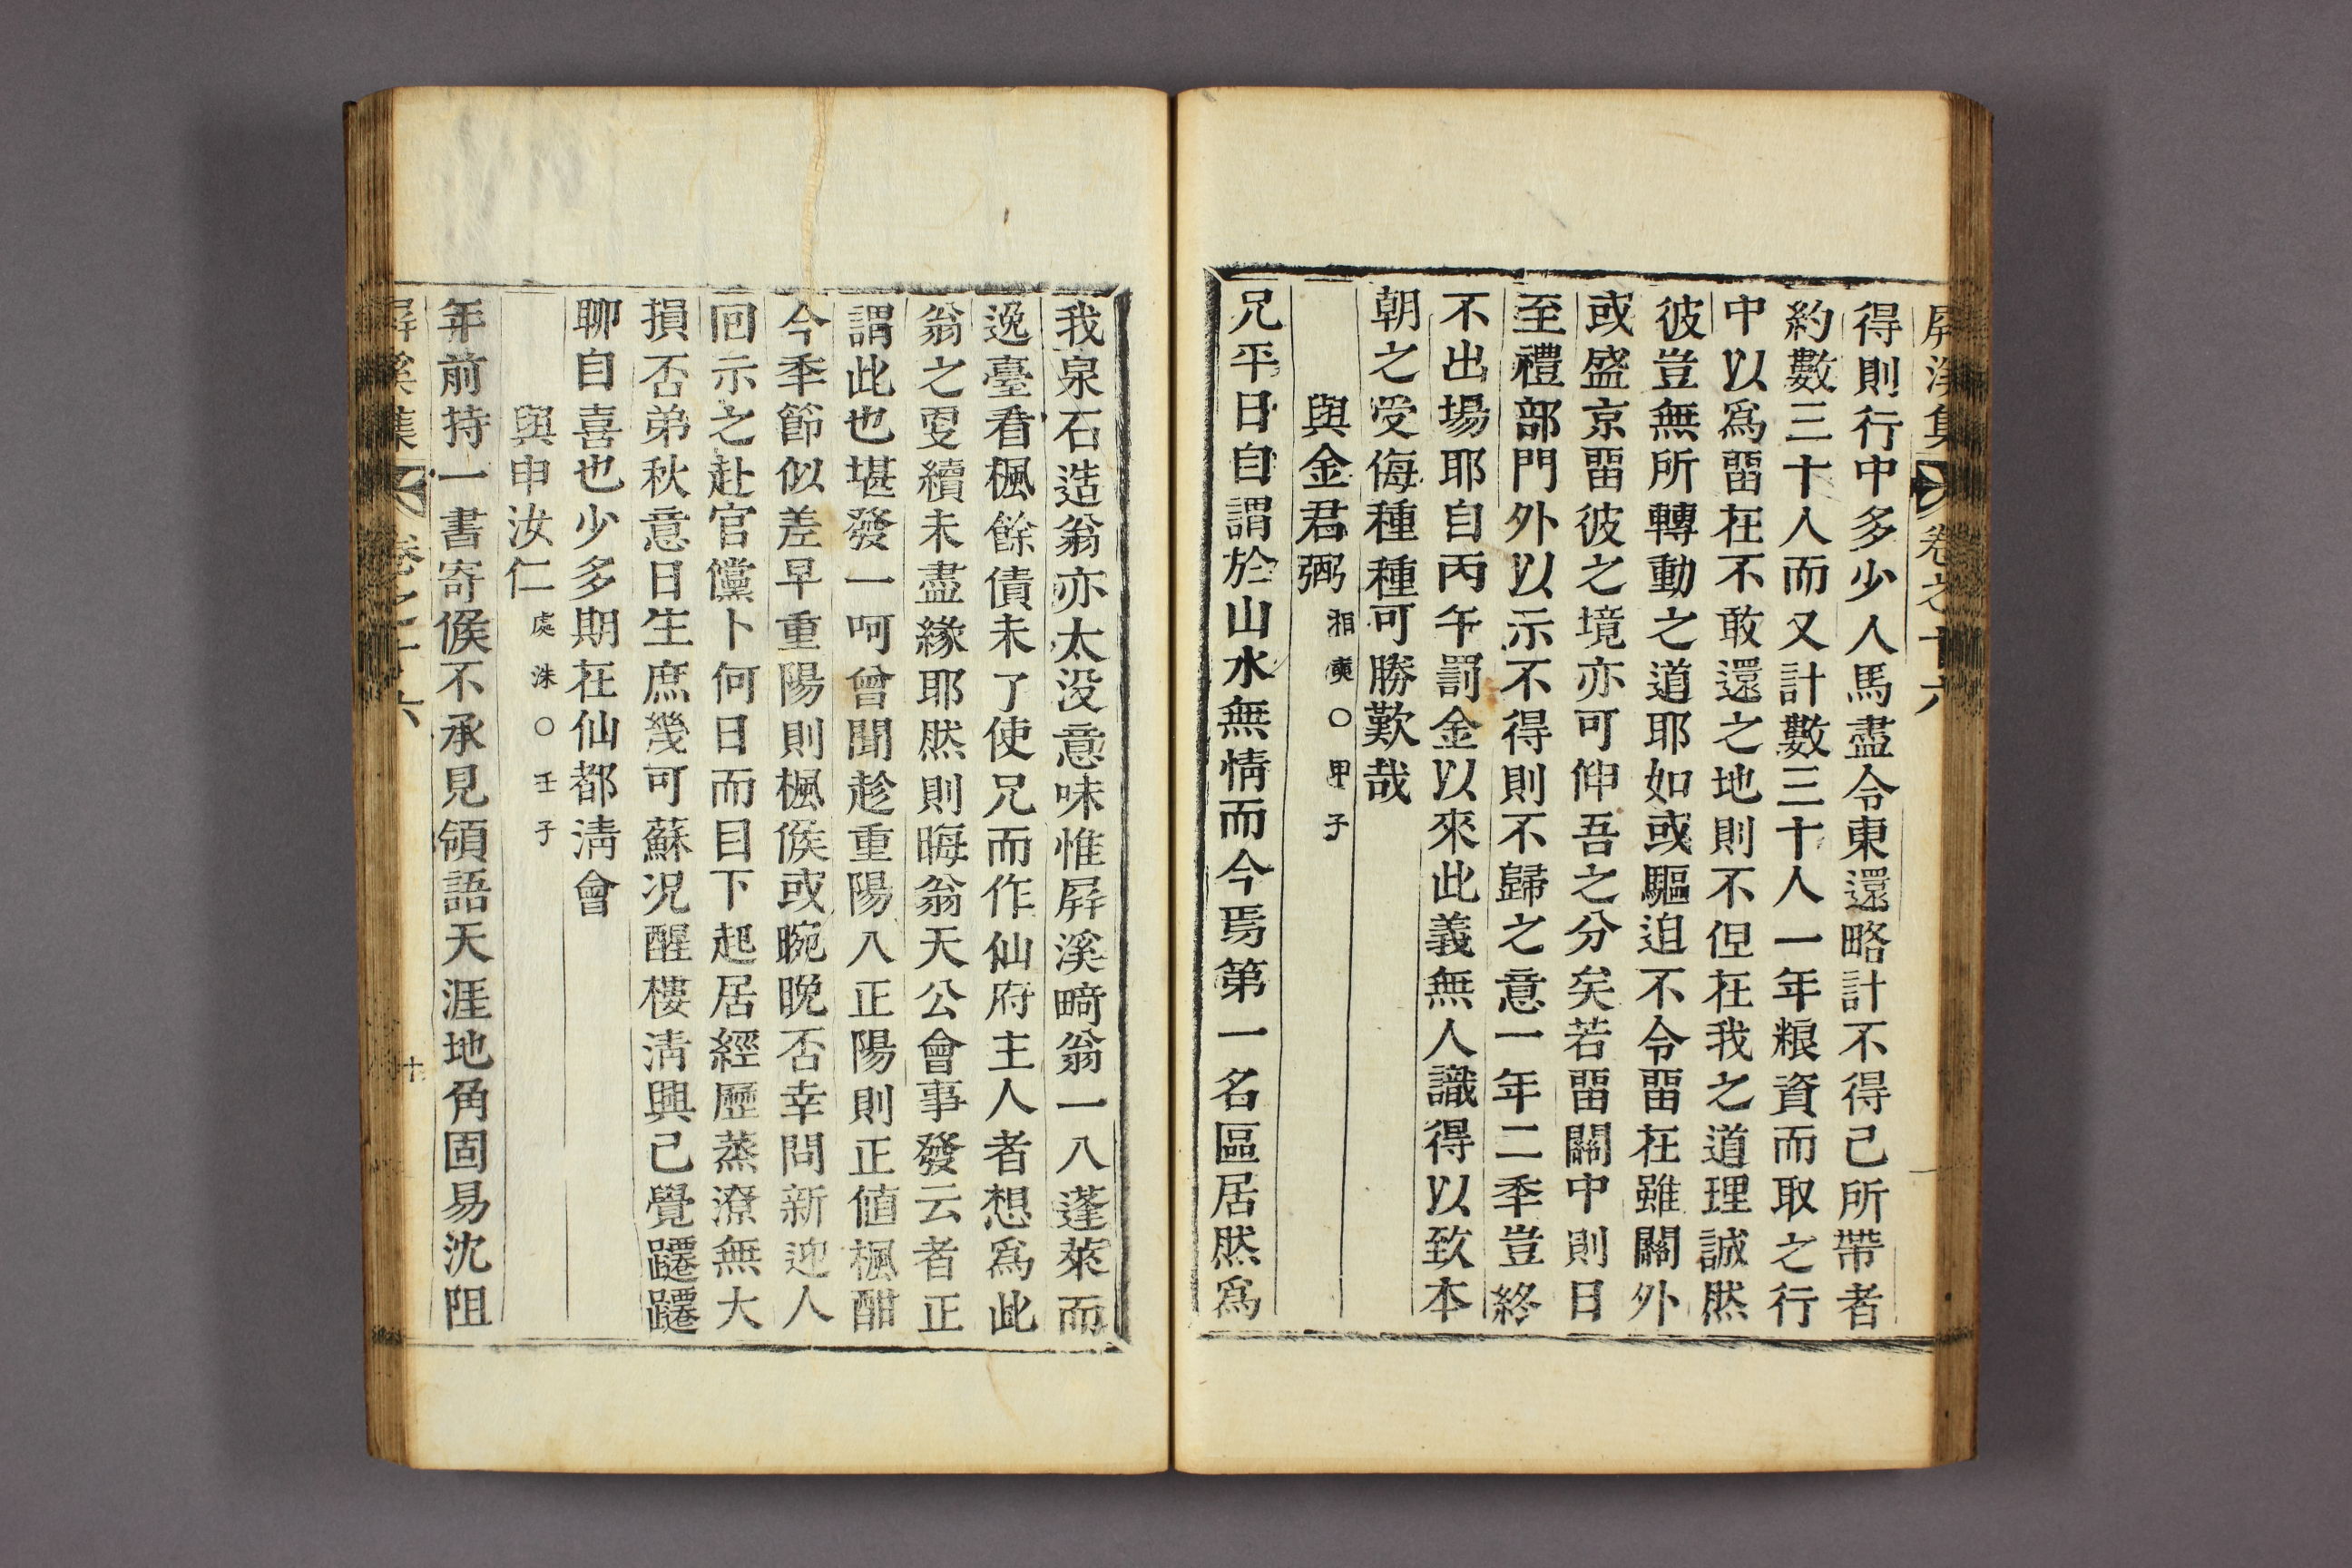 屛溪集 卷之十六
得則行中多少人馬盡令東還略計不得已所帶者
約數三十人而又計數三十人一年粮資而取之行
中以爲畱在不敢還之地則不但在我之道理誠然
彼豈無所轉動之道耶如或驅迫不令畱在雖關外
或盛京畱彼之境亦可伸吾之分矣若畱關中則日
至禮部門外以示不得則不歸之意一年二秊豈終
不出場耶自丙午罰金以來此義無人識得以致本
朝之受侮種種可勝歎哉
與金君弼 相奭○甲子
兄平日自謂於山水無情而今焉第一名區居然爲
我泉石造翁亦太没意味惟屛溪畸翁一八蓬萊而
逸臺看楓餘債未了使兄而作仙府主人者想爲此
翁之㪅續未盡緣耶然則晦翁天公會事發云者正
謂此也堪發一呵曾聞趁重陽八正陽則正値楓酣
今秊節似差早重陽則楓候或晼晚否幸問新迎人
回示之赴官儻卜何日而目下起居經歷蒸潦無大
損否弟秋意日生庶幾可蘇况醒樓淸興已覺躚躚
聊自喜也少多期在仙都淸會
與申汝仁 處洙○壬子
年前持一書寄候不承見領語天涯地角固易沈阻
屛溪集 卷之十六 十